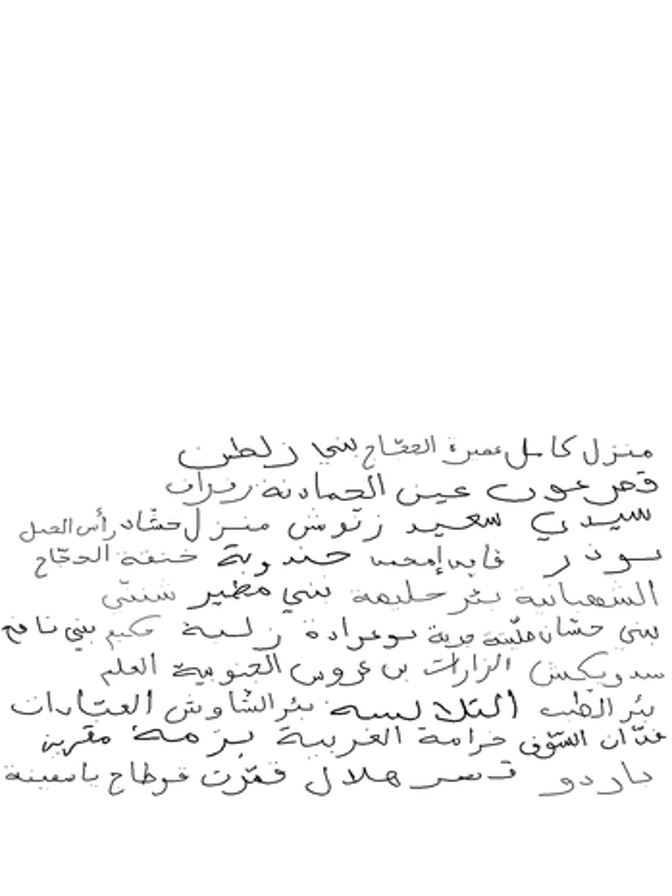 منزل كامل عميرة الحجّاج بني زلطن
قصر عون عين الحمادنة زوراف
سيدي سعيد زنّوش منزل حشّاد رأس الجبل
بوذر فايد إمحمد جندوبة خنقة الحجّاج
الشهبانية بئر حليمة بني مطير شننّي
بني حسّان مليّنة جربة بوعرادة زلبة حكيم بني نافع
سدويكش الزارات بن عروس الجنوبية العلم
بئر الطيب التلالسة بئر الشاوش العتادات
غنّان السّوق حزامة الغربية بزمة مقرين
باردو قصر هلال فمّرت قرطاج ياسمينة